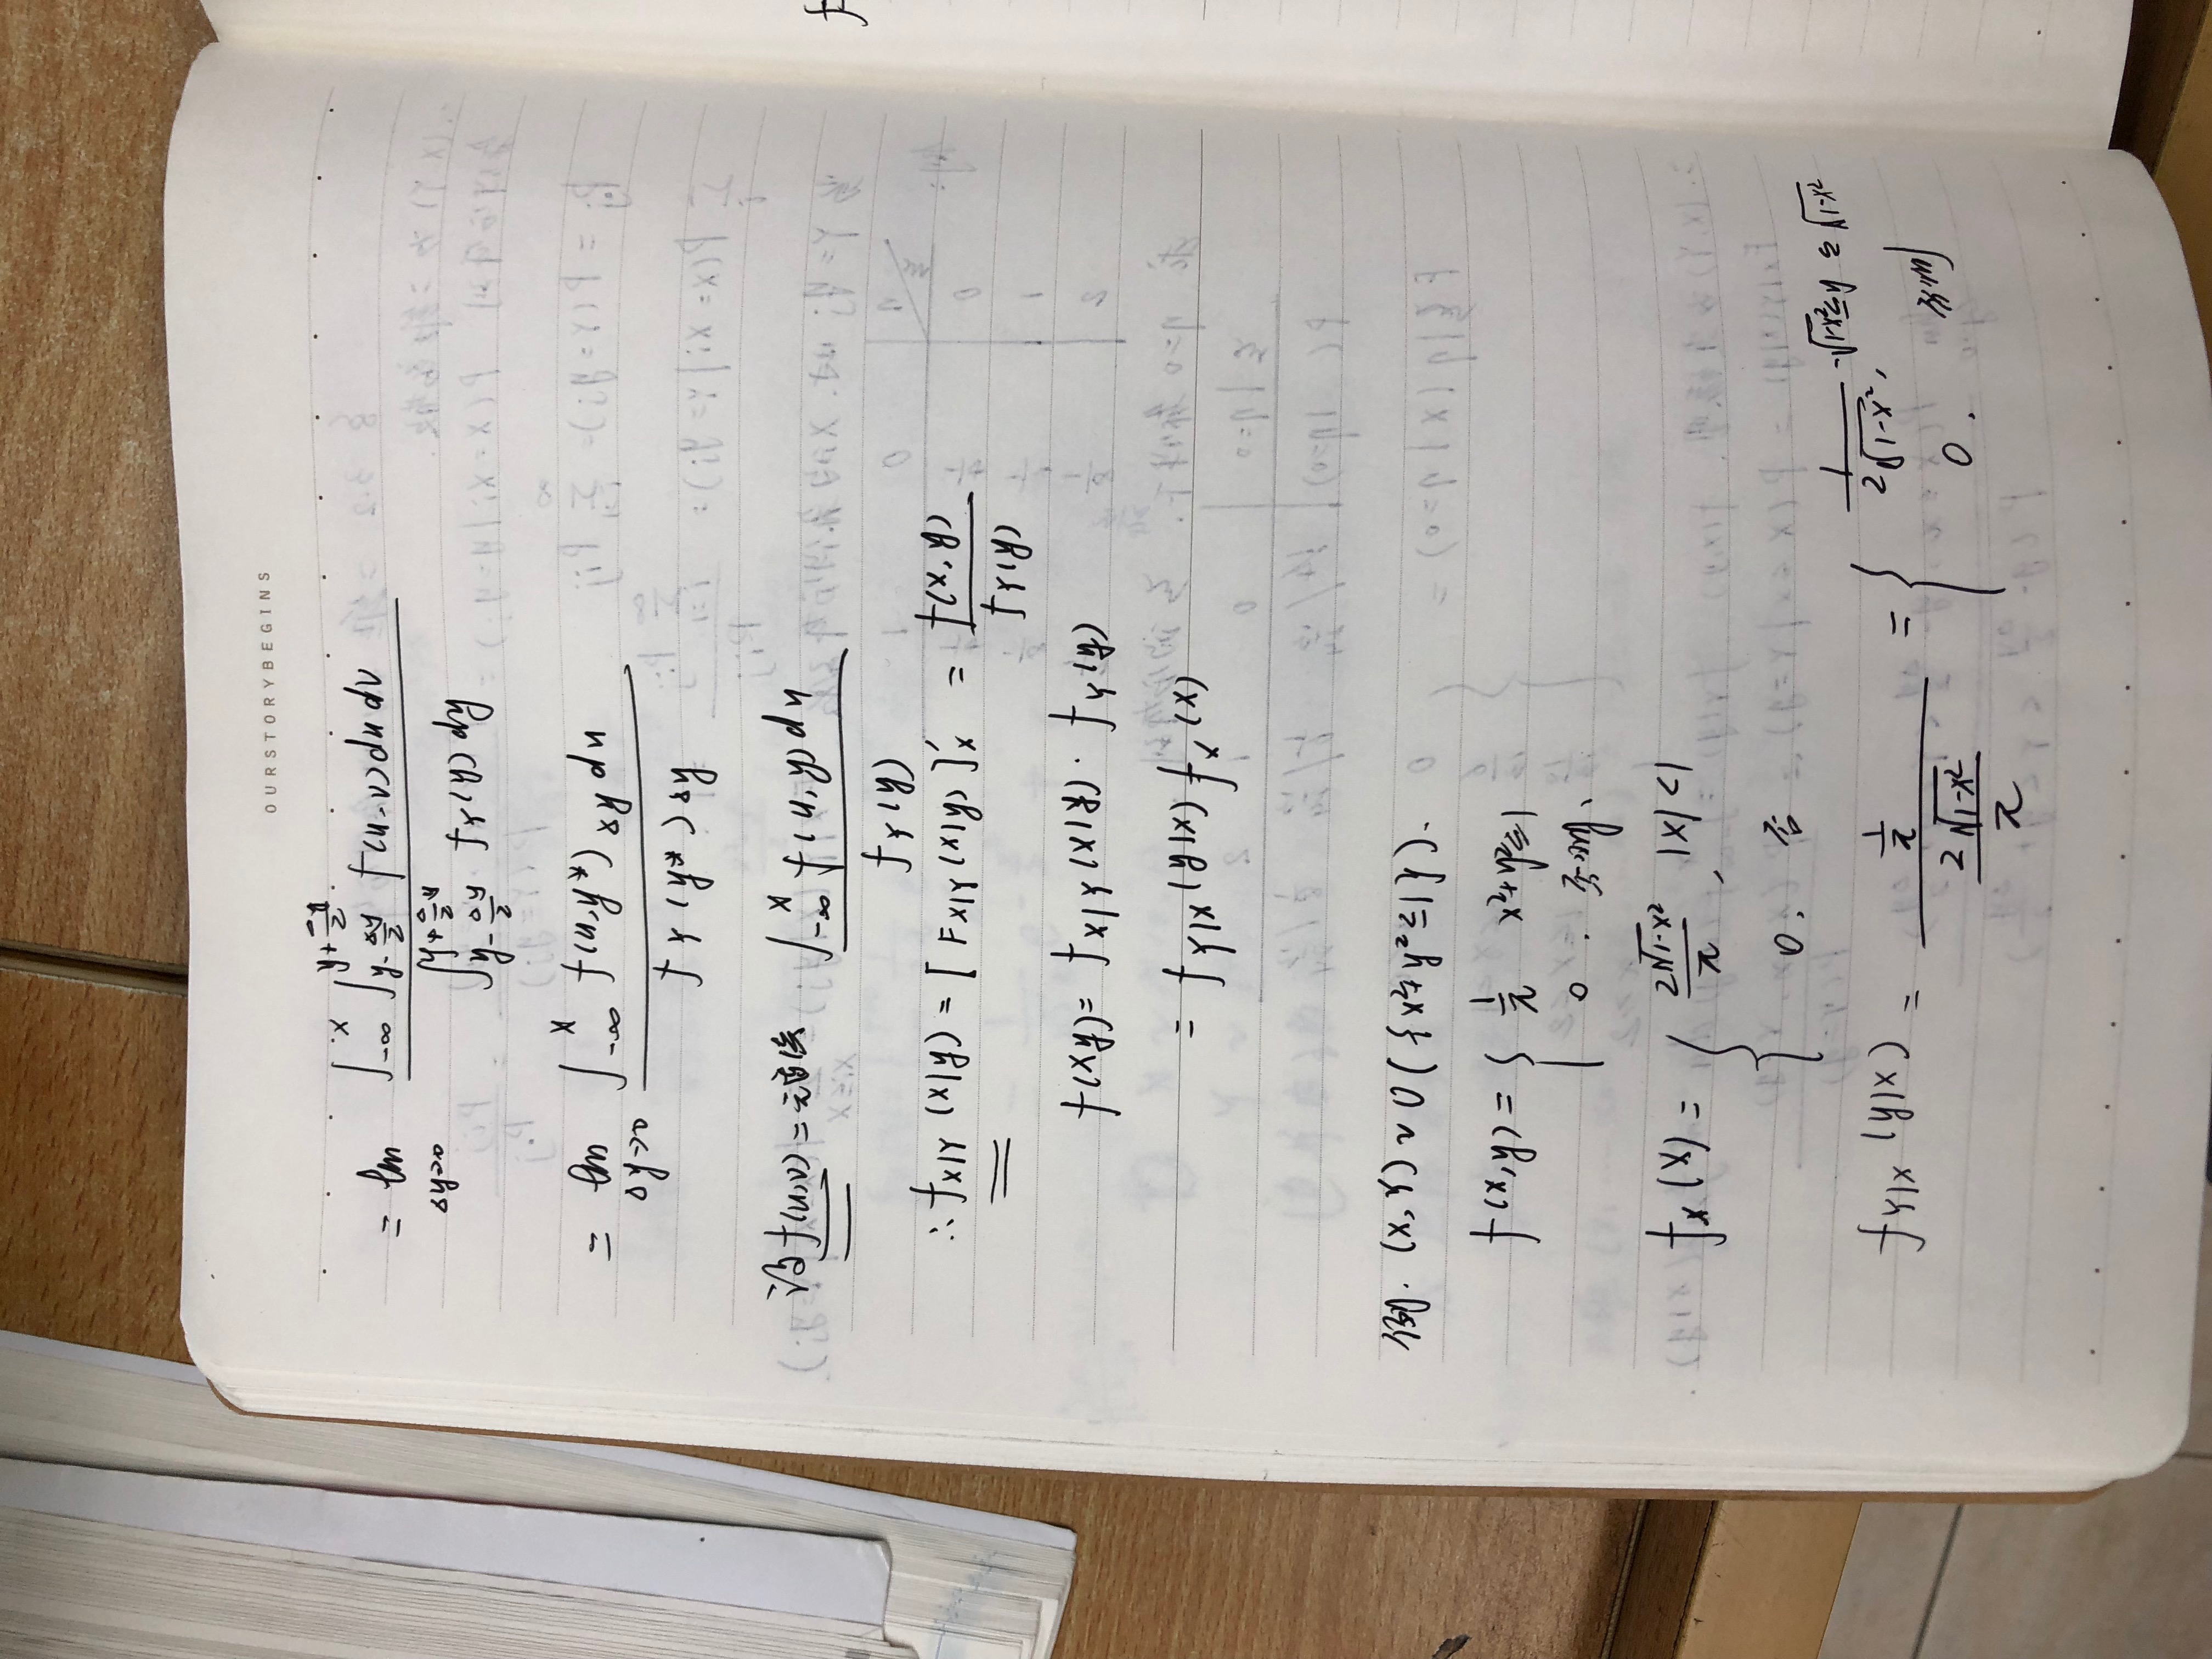 OURSTORYBEGINS
= lim_{Δy→0} \frac{∫_{-∞}^{x} ∫_{y-\frac{Δy}{2}}^{y+\frac{Δy}{2}} f(u,v) du dv}{∫_{y-\frac{Δy}{2}}^{y+\frac{Δy}{2}} f_Y(y) dy}
= lim_{Δy→0} \frac{∫_{-∞}^{x} f(u,y*) Δy du}{f_Y(y*) Δy}
设 f(u,v) 二元连续 \frac{∫_{-∞}^{x} f(u,y) du}{f_Y(y)}
∴ f_{X|Y}(x|y) = [F_{X|Y}(x|y)]'_x = \frac{f(x,y)}{f_Y(y)}
f(xy) = f_{X|Y}(x|y) · f_Y(y)
= f_{Y|X}(y|x) f_X(x)
例. (X,Y) ~ U({x²+y²≤1}).
f(x,y) = { \frac{1}{π} x²+y²≤1
0. 否则.
f_X(x) = { \frac{2\sqrt{1-x²}}{π}, |x|<1
0. 否
f_{Y|X}(y|x) = \frac{\frac{1}{π}}{\frac{2\sqrt{1-x²}}{π}} = { \frac{1}{2\sqrt{1-x²}}, -\sqrt{1-x²}≤y≤\sqrt{1-x²}
0. 否则